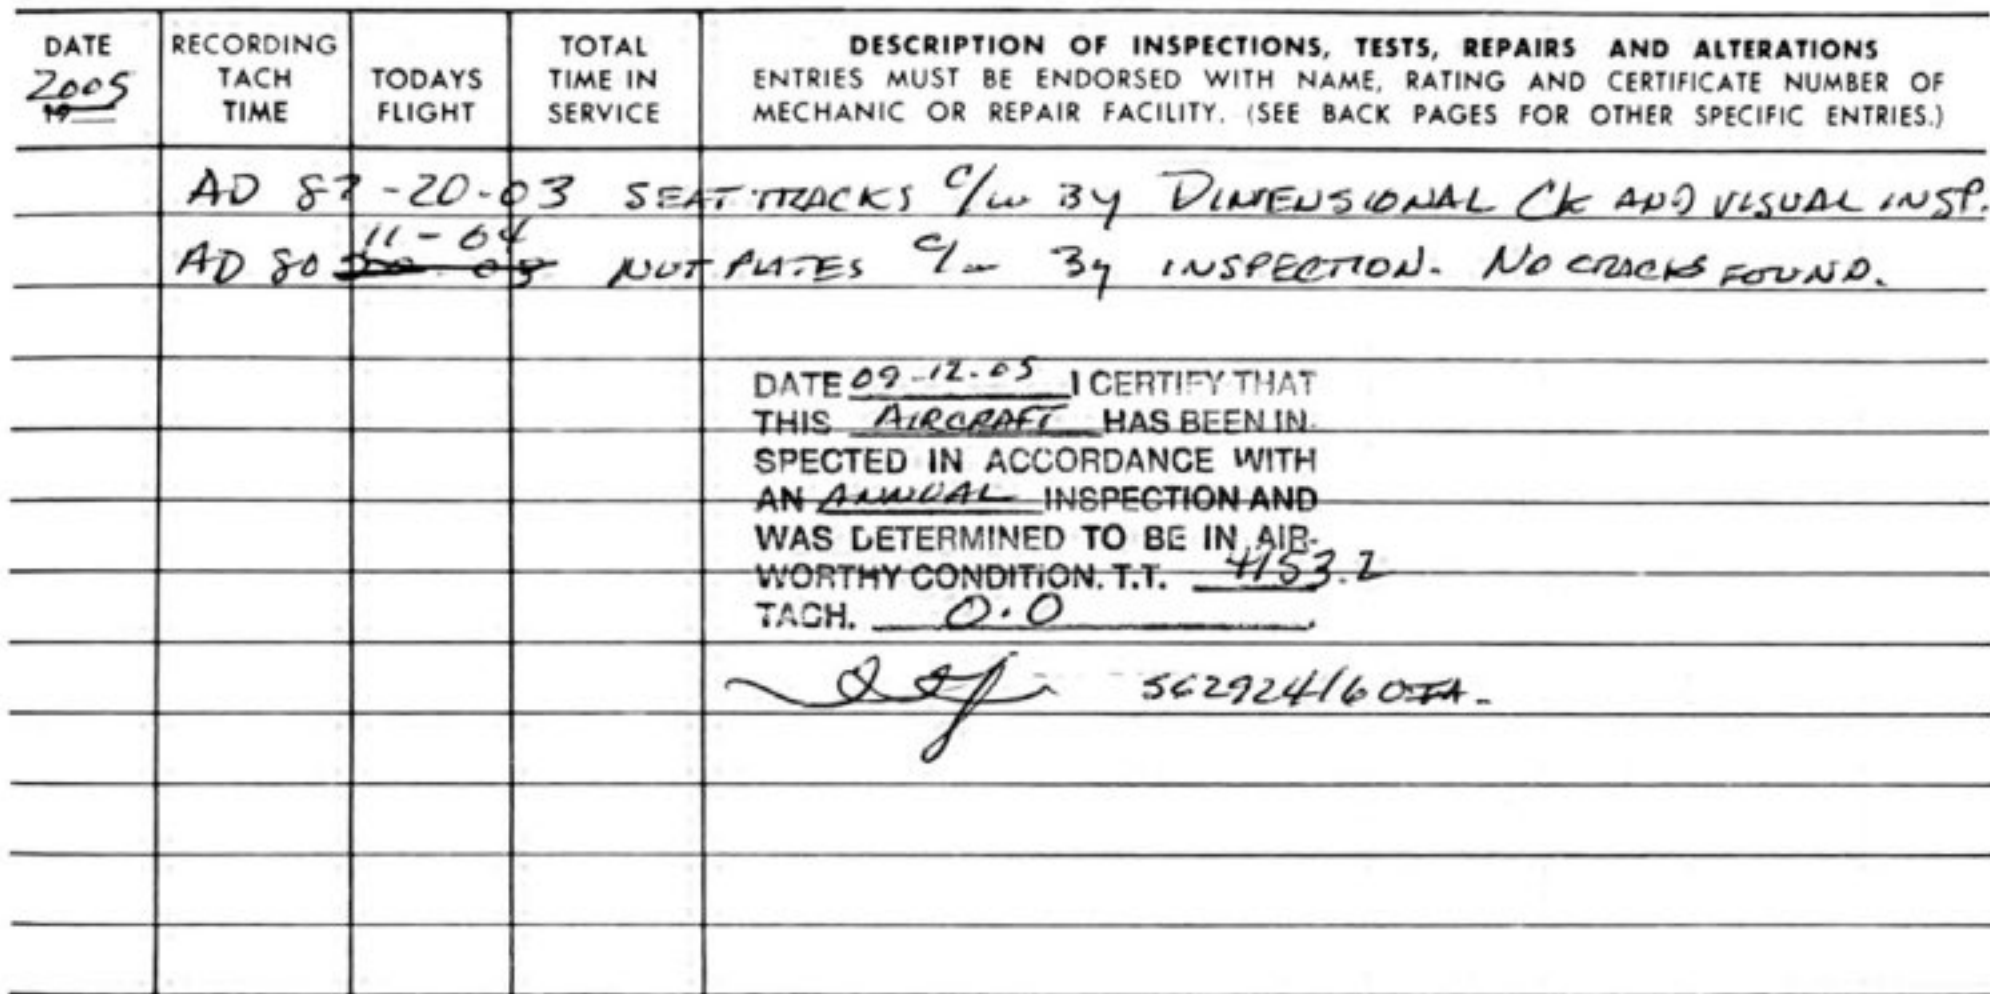 DATE 2005 19
RECORDING TACH TIME
TODAYS FLIGHT
TOTAL TIME IN SERVICE
DESCRIPTION OF INSPECTIONS, TESTS, REPAIRS AND ALTERATIONS
ENTRIES MUST BE ENDORSED WITH NAME, RATING AND CERTIFICATE NUMBER OF
MECHANIC OR REPAIR FACILITY. (SEE BACK PAGES FOR OTHER SPECIFIC ENTRIES.)
AD 87-20-03 SEAT TRACKS C/W BY DIMENSIONAL CK AND VISUAL INSP.
11-04
AD 80 NUT PLATES C/W BY INSPECTION. NO CRACKS FOUND.
DATE 09-12-05 I CERTIFY THAT
THIS AIRCRAFT HAS BEEN IN-
SPECTED IN ACCORDANCE WITH
AN ANNUAL INSPECTION AND
WAS DETERMINED TO BE IN AIR-
WORTHY CONDITION. T.T. 4153.2
TACH. 0.0.
562924160IA.